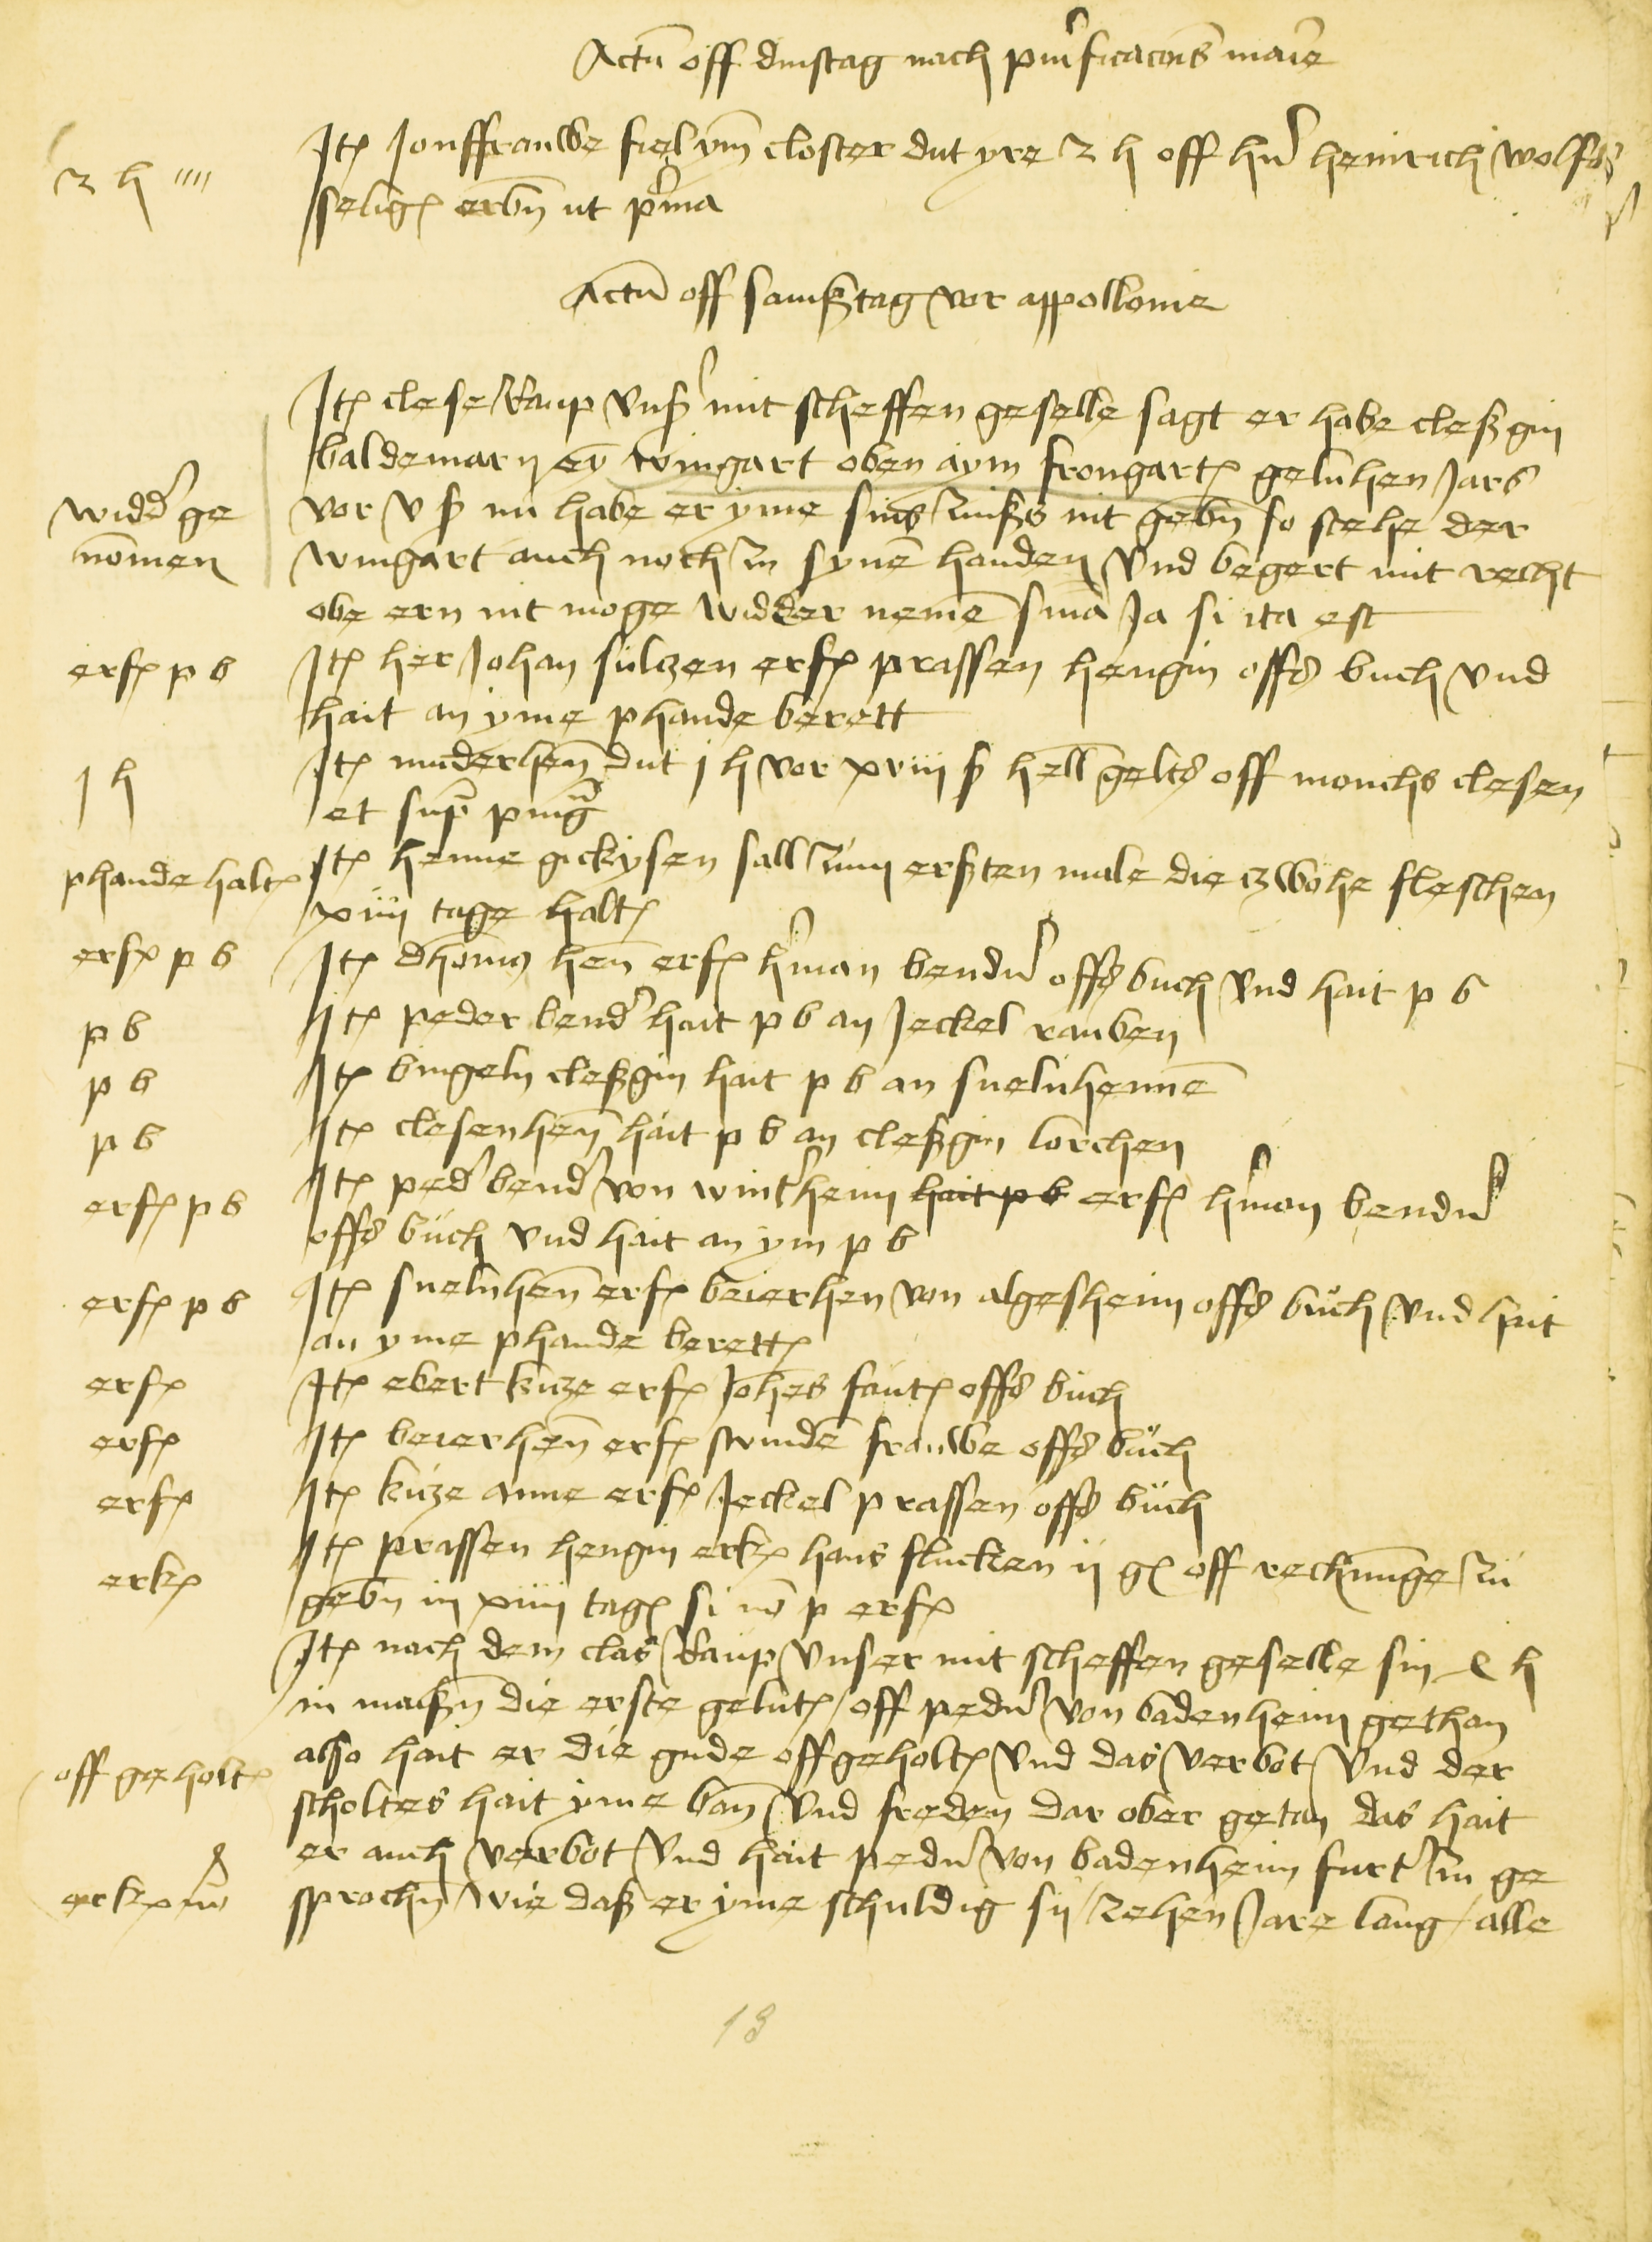 Actu off dinstag nach purificacois marie
2 h
Ite Jonffrauwe fiel ym closter dut yre 2 h off her heinrich wolffs
selige erbn ut p̓ma
Actu off samßtag vor appollonie
Ite clese raup unß mit scheffen geselle sagt er habe cleßgin
baldemarn ey wingart oben aym frongarte geluhen Jars
widd̓ ge
vor v ß nu habe er yme sins zinßs nit gebn so stehe der
nomen
wingart auch noch in syne handen und begert mit recht
obe ern nit moge widder neme sma Ja si ita est
erf p b
Ite her Johan sultzen erf prassen hengin offs buch und
hait an yme phande berett
j h
Ite muderhen dut j h vor xviii ß hell gelts off monchs clesen
et sup̓ ping
phande halt
Ite henne gickysen sall zum erßten male die zwohe fleschen
xiiii tage halt
erf p b
Ite dhoms hen erf h̓man bender offs buch und hait p b
p b
Ite peder bend̓ hait p b an Jeckel rauben
p b
Ite bingeln cleßgin hait p b an snelnhenne
p b
Ite clesenhen hait p b an cleßgin lorchen
erf p b
Ite ped̓ bend̓ von wint̓heim hait p b erf h̓man bender
offs buch und hait an ym p b
erf p b
Ite snelnhen erf beierhen von algesheim offs buch und hait
an yme phande berett
erf
Ite ebert kitze erf Johes faut offs buch
erf
Ite beierhen erf swinde frauwe offs buch
erf
Ite kitze anne erf Jeckel prassen offs buch
erk
Ite prassen hengin erk hans flucken ii g off rechnunge zu
gebn in xiiii tag si no p erf
Ite nach dem clas raup unser mit scheffen geselle sin e h
in maißn die erste gelut off peder von badenheim gethan
off geholt
also hait er die gude offgeholt und das verbot und der
scholtes hait yme ban und freden dar ober getan das hait
er auch verbot und hait peder von badenheim furt̓ zu ge
sprochn wie daß er yme schuldig sy zehen Jare lang alle
13